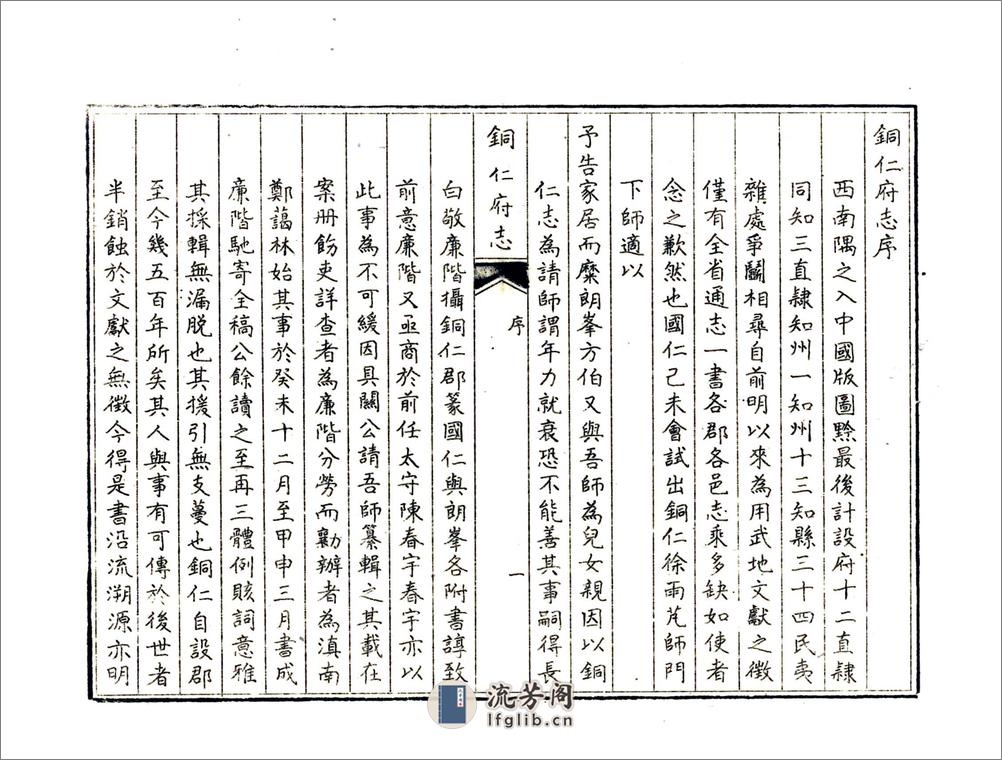 銅仁府志序
西南隅之入中國版圖黔最後計設府十二直隸
同知三直隸知州一知州十三知縣三十四民夷
雜處爭鬭相尋自前明以來為用武地文獻之徵
僅有全省通志一書各郡各邑志乘多缺如使者
念之歉然也國仁己未會試出銅仁徐雨芃師門
下師適以
予告家居而糜朗峯方伯又與吾師為兒女親因以銅
仁志為請師謂年力就衰恐不能善其事嗣得長
銅仁府志
序
一
白敬廉階攝銅仁郡篆國仁與朗峯各附書諄致
前意廉階又亟商於前任太守陳春宇春宇亦以
此事為不可緩因具關公請吾師纂輯之其載在
案册飭吏詳查者為廉階分勞而勷辦者為滇南
鄭藹林始其事於癸未十二月至甲申三月書成
廉階馳寄全稿公餘讀之至再三體例賅詞意雅
其採輯無漏脫也其援引無支蔓也銅仁自設郡
至今幾五百年所矣其人與事有可傳於後世者
半銷蝕於文獻之無徵今得是書沿流溯源亦明
流芳阁
lfglib.cn